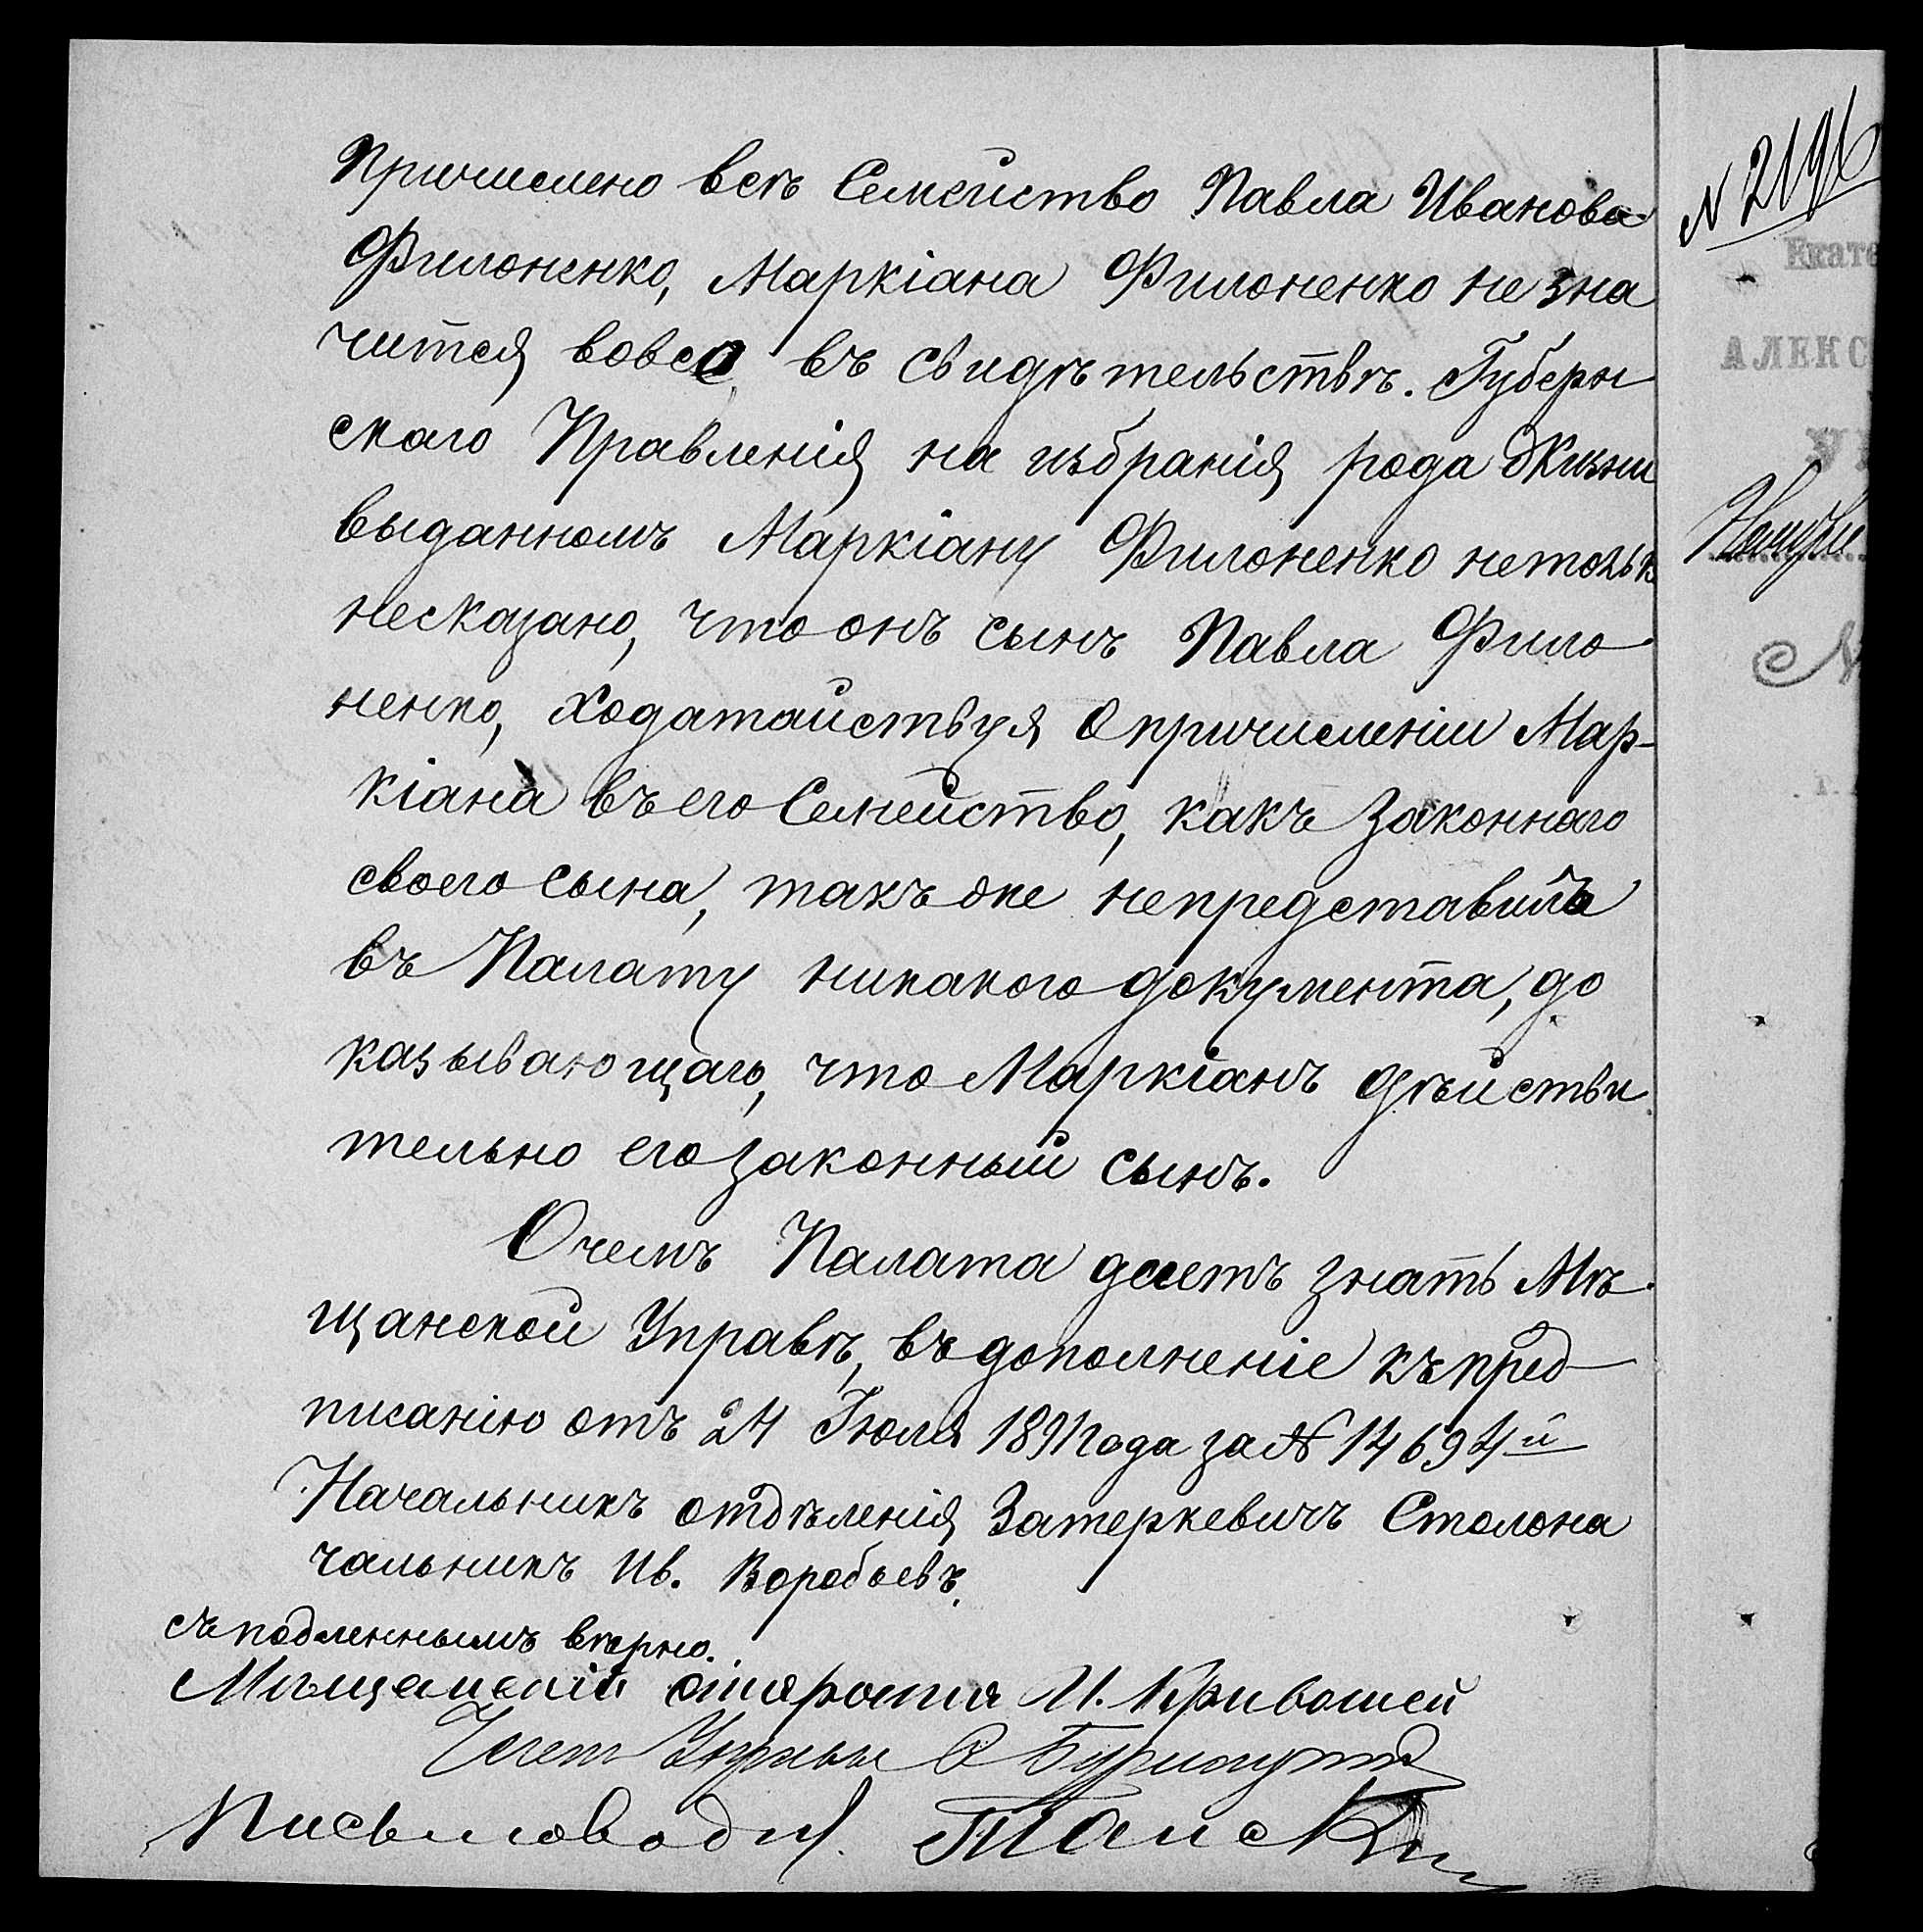 Причислено всѣ Семейство Павла Иванова
Филоненко, Маркіана Филоненко не зна
чится вовсе въ свидѣтельствѣ. Губерн
скаго Правленія на избранія рода Жизни
выданномъ Маркіану Филоненко нетольк
несказано, что онъ сынъ Павла Фило
ненко, ходатайствуя о причисленіи Мар-
кіана въ его Семейство, какъ законнаго
своего сына, такъ же непредставилъ
въ Палату никакого документа, до
казывающаго, что Маркіанъ дѣйстви
тельно его законный сынъ.
О чемъ Палата даетъ знать Мѣ
щанской Управѣ, въ дополненіе къ пред
писанію отъ 24 Іюля 1891 года за № 14694й
Начальникъ отдѣленія Затеркевичъ Столона
чальникъ Ив. Воробьевъ.
съ подленнымъ вѣрно.
Мѣщанскій староста И. Кривошей
Член Управы
Письмоводи.
№ 2196
Екате
АЛЕКС